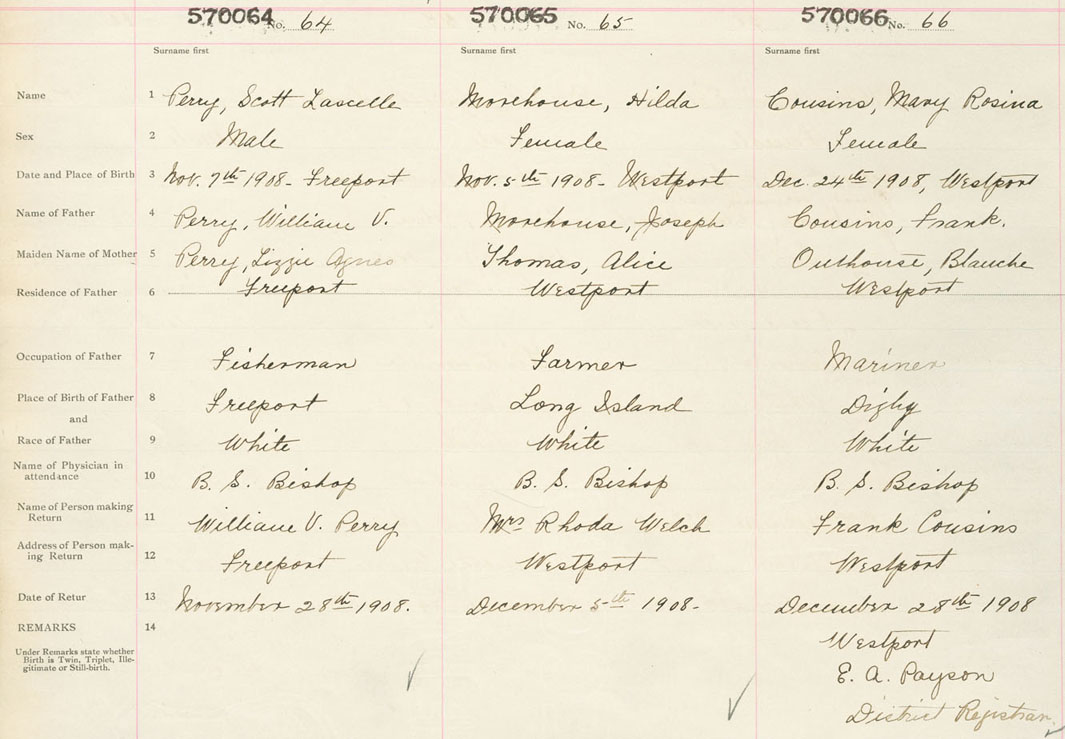 570064 No. 64 570065 No. 65 570066 No. 66
Surname first Surname first Surname first
Name 1 Perry, Scott Lascelle Morehouse, Hilda Cousins, Mary Rosina
Sex 2 Male Female Female
Date and Place of Birth 3 Nov. 7th 1908 - Freeport Nov. 5th 1908 - Westport Dec. 24th 1908, Westport
Name of Father 4 Perry, William V. Morehouse, Joseph Cousins, Frank.
Maiden Name of Mother 5 Perry, Lizzie Agnes Thomas, Alice Outhouse, Blanche
Residence of Father 6 Freeport Westport Westport
Occupation of Father 7 Fisherman Farmer Mariner
Place of Birth of Father 8 Freeport Long Island Digby
and
Race of Father 9 White White White
Name of Physician in
attendance 10 B. S. Bishop B. S. Bishop B. S. Bishop
Name of Person making
Return 11 William V. Perry Mrs Rhoda Welch Frank Cousins
Address of Person mak-
ing Return 12 Freeport Westport Westport
Date of Retur 13 November 28th 1908. December 5th 1908. December 28th 1908
REMARKS 14 Westport
Under Remarks state whether
Birth is Twin, Triplet, Ille-
gitimate or Still-birth.
E. A. Payson
District Registrar